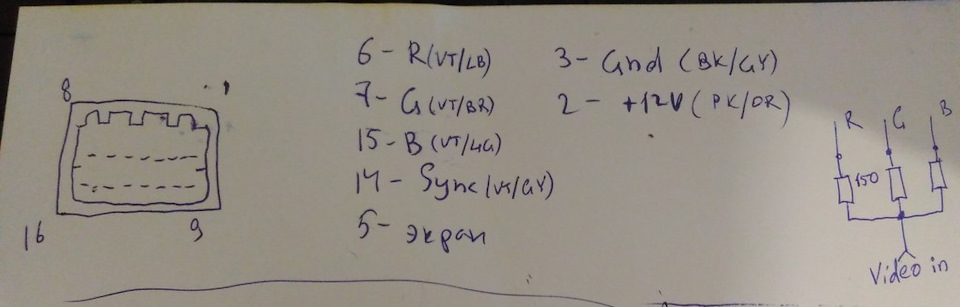 6 - R(VT/LB)
7 - G(VT/BR)
15 - B(VT/LG)
14 - Sync(VT/GY)
5 - экран
3 - Gnd (BK/GY)
2 - +12V (PK/OR)
8 1
16 9
R G B
150
Video in